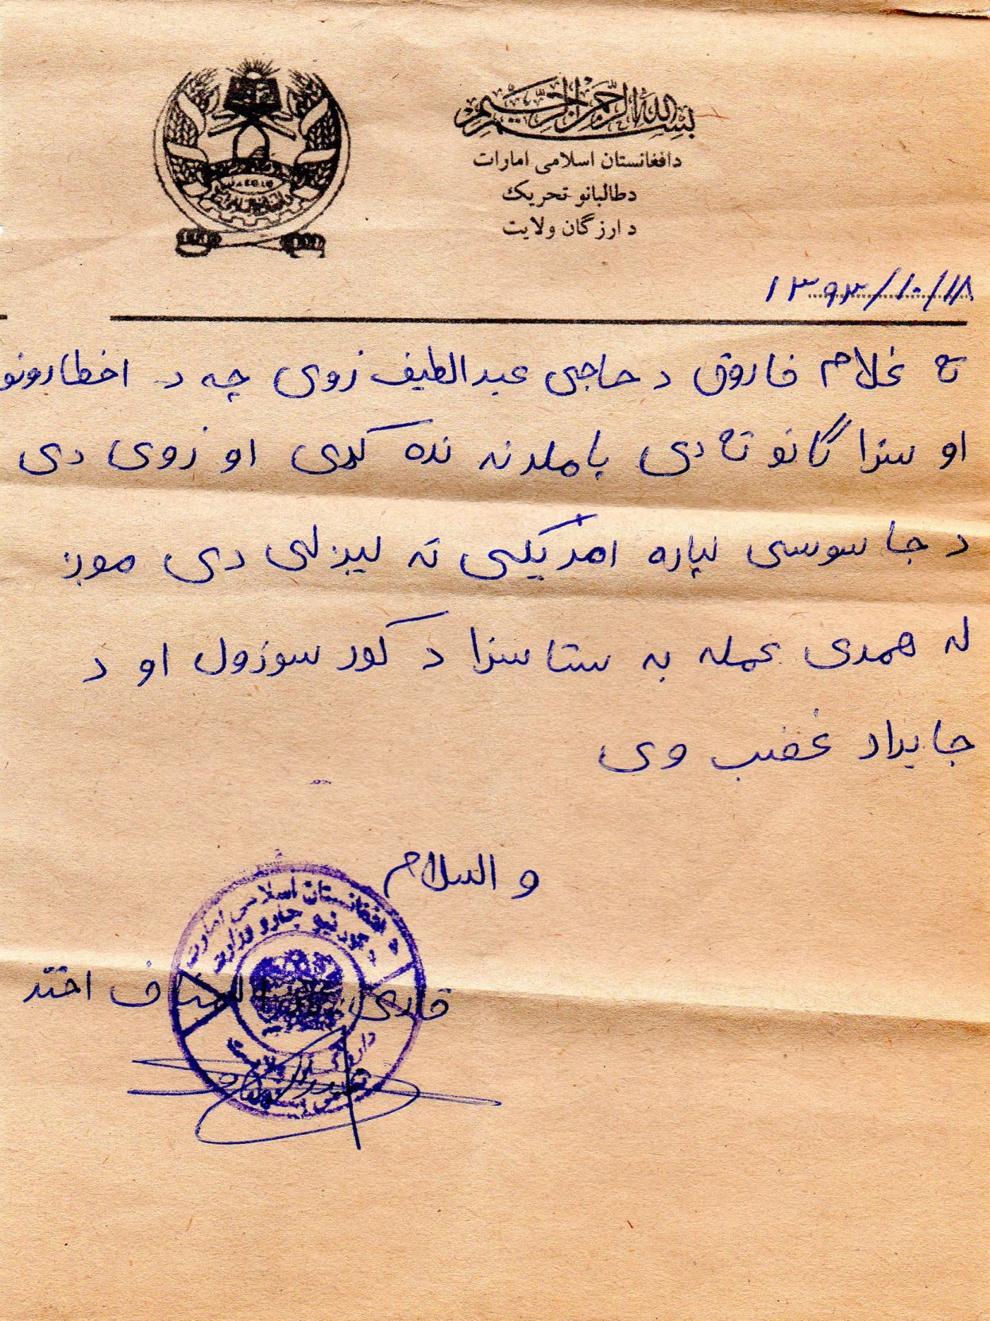 بسم الله الرحمن الرحیم
دافغانستان اسلامی امارات
دطالبانو تحریک
د ارزگان ولایت
۱۳۹۳/۱۰/۱۸
غلام فاروق د حاجی عبدالطیف زوی چه د اخطارونو
او سزا گانو تا دی پاملرنه نده کړی او زوی دی
د جاسوسی لپاره امریکی ته لیږلی دی موږ
له همدی عمله به ستا سزا د کور سوزول او د
جایداد غضب وی
و السلام
د افغانستان اسلامی امارت
د کورنیو چارو وزارت
قاری